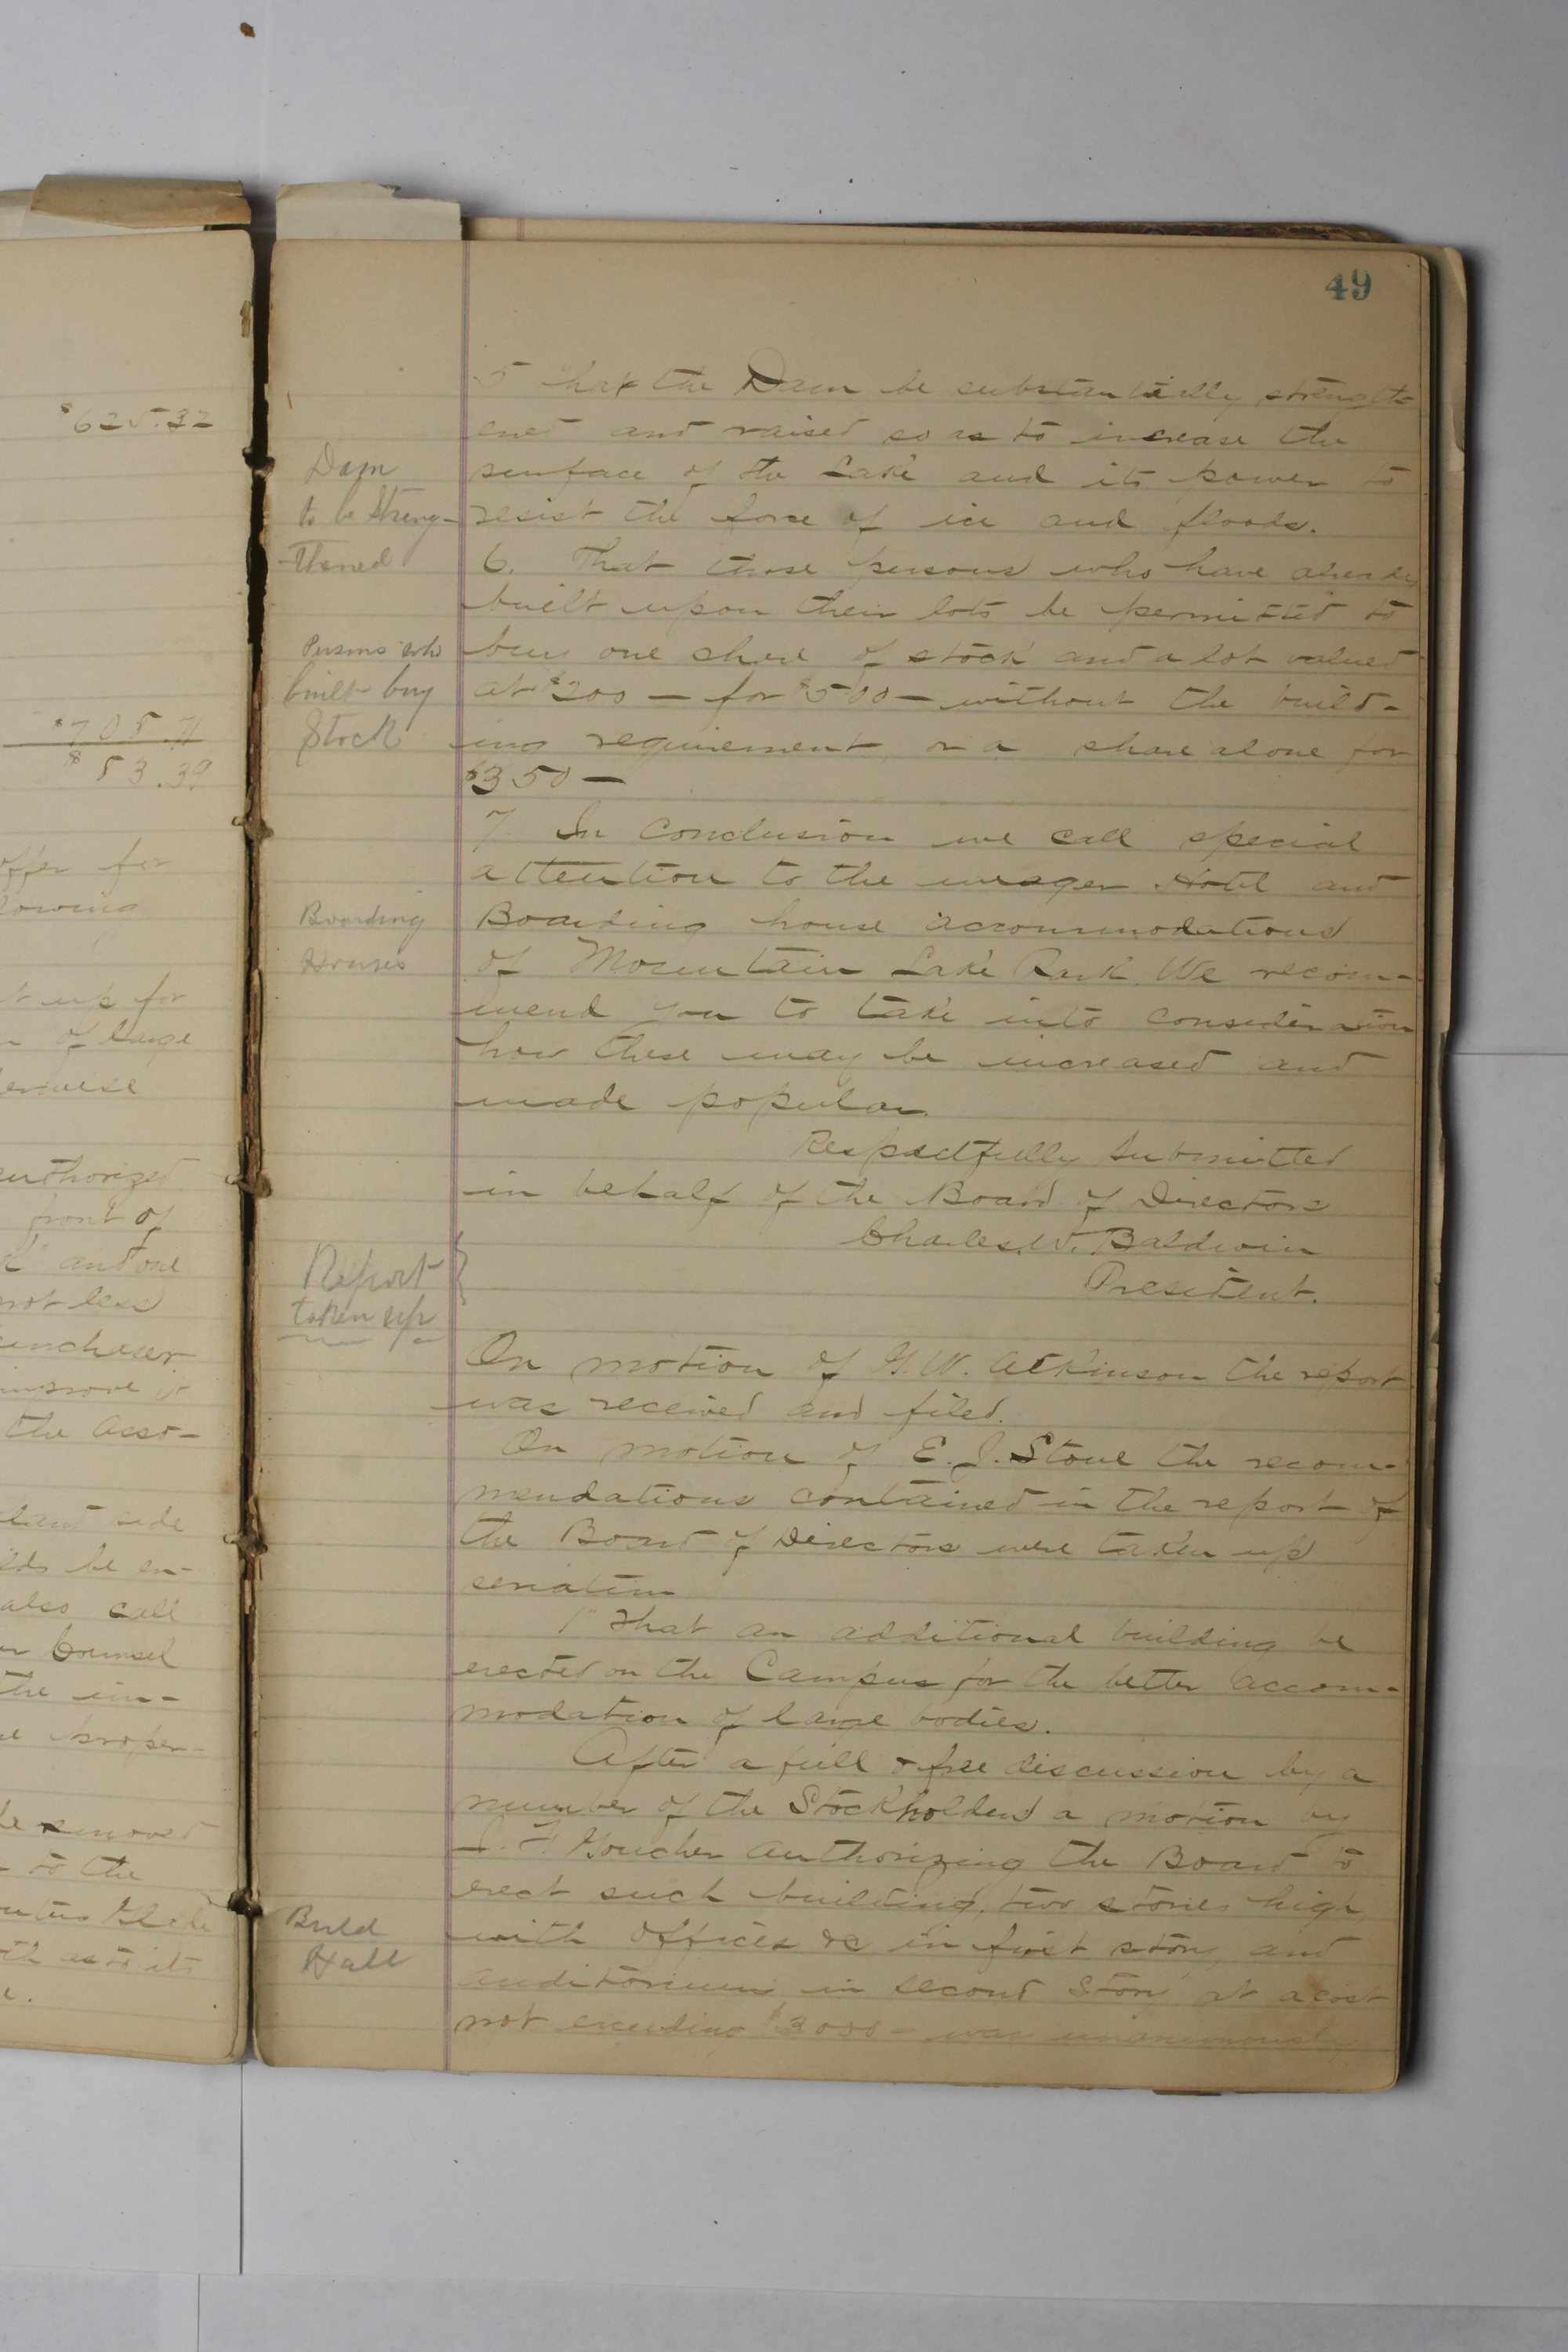 $625.32
$705.71
$53.39
offer for
lowing
t up for
of large
erwise
authorized
front of
and one
not less
purchaser
improve it
the Asso-
land side
be en-
also call
Counsel
the im-
proper-
be removed
to the
as to its
49
5 That the Dam be substantially strength-
ened and raised so as to increase the
Dam
surface of the Lake and its power to
to be Streng-
resist the force of ice and floods.
thened
6. That those persons who have already
built upon their lots be permitted to
Persons who
buy one share of stock and a lot valued
built buy
at $200 — for $500 — without the build-
Stock
ing requirement, or a share alone for
$350 —
7. In Conclusion we call special
attention to the meager Hotel and
Boarding
Boarding house accommodations
Houses
of Mountain Lake Park. We recom-
mend you to take into consideration
how these may be increased and
made popular.
Respectfully Submitted
in behalf of the Board of Directors
Charles W. Baldwin
Report
President.
taken up
On motion of G. W. Atkinson the report
was received and filed.
On motion of E. J. Stone the recom-
mendations contained in the report of
the Board of Directors were taken up
seriatim
1" That an additional building be
erected on the Campus for the better accom-
modation of large bodies.
After a full & free discussion by a
number of the Stockholders a motion by
J. F. Goucher authorizing the Board to
erect such building, two stories high
Build
with offices &c in first story, and
Hall
auditorium in second story at a cost
not exceeding $3000 — was unanimously